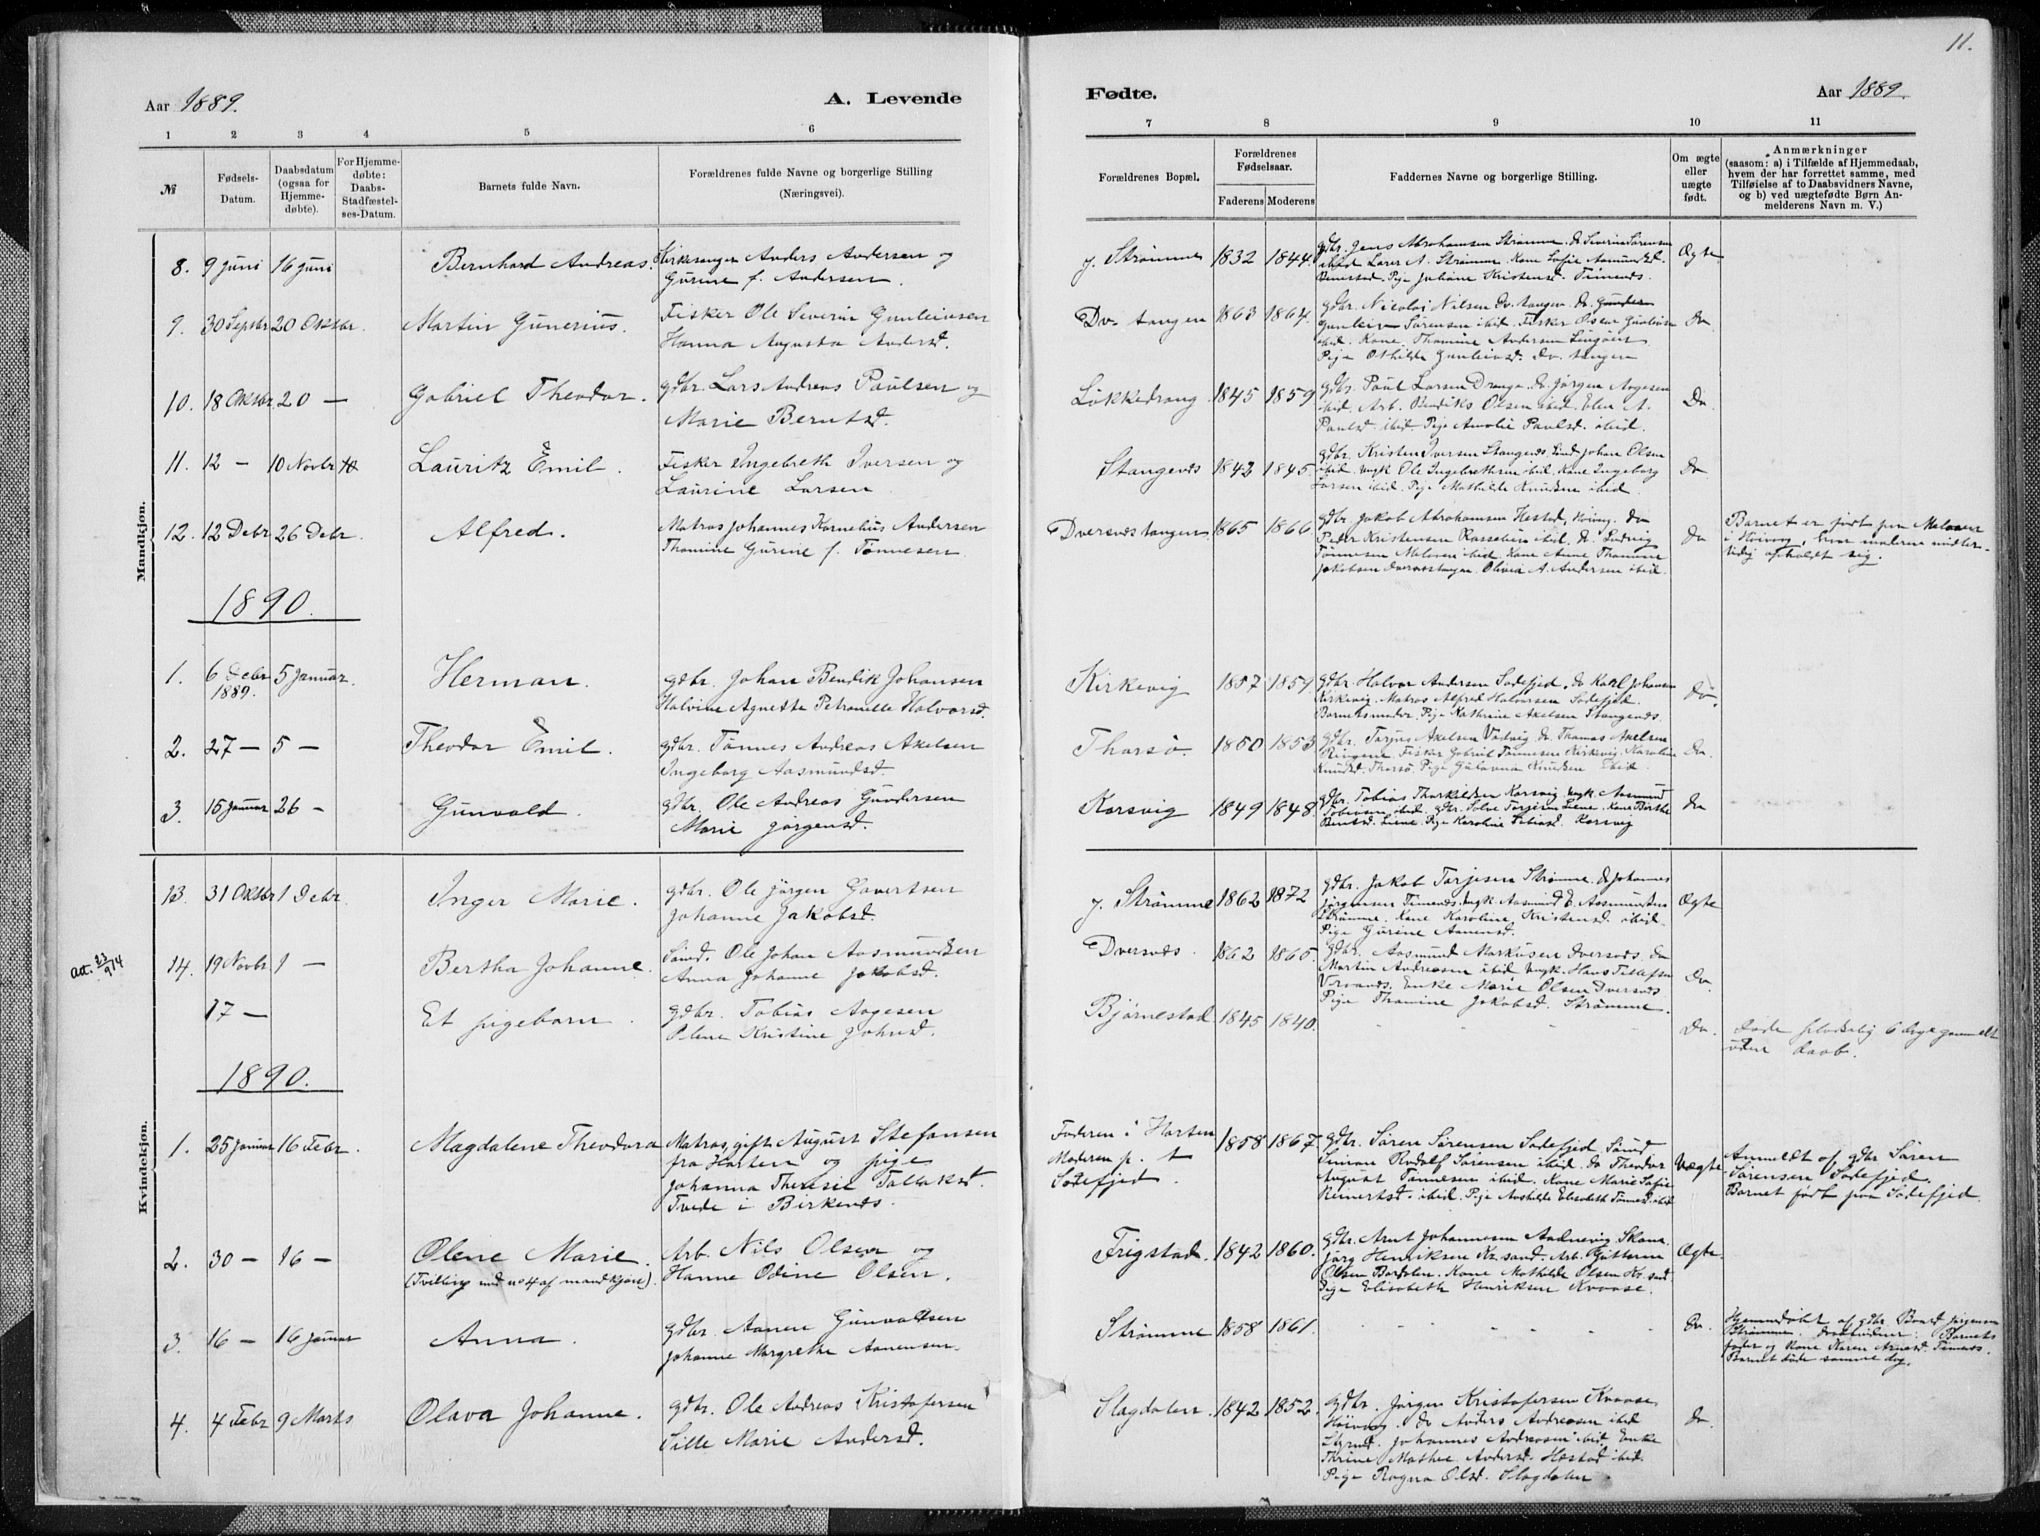 11.
Aar 1889.
A. Levende
Fødte.
Aar 1889.
1 2 3 4 5 6
7 8 9 10 11
№
Fødsels-
Datum.
Daabsdatum
(ogsaa for
Hjemme-
døbte).
For Hjemme-
døbte:
Daabs-
Stadfæstel-
ses-Datum.
Barnets fulde Navn.
Forældrenes fulde Navne og borgerlige Stilling
(Næringsvei).
Forældrenes Bopæl.
Forældrenes
Fødselsaar.
Faderens Moderens
Faddernes Navne og borgerlige Stilling.
Om ægte
eller
uægte
født.
Anmærkninger
(saasom: a) i Tilfælde af Hjemmedaab,
hvem der har forrettet samme, med
Tilføielse af to Daabsvidners Navne,
og b) ved uægtefødte Børn An-
melderens Navn m. V.)
Mandkjøn.
8. 9 Juni 16 Juni
Bernhard Andreas.
Kirkesanger Anders Andersen og
Gurine f. Andersen.
y. Strømme 1832 1844.
gdbr. Jens Abrahamsen Strømme. do Severin Sørensen
ibid Lars A. Strømme. Kone Sofie Aasmundsd.
Pige Juliane Kristense. Timenes.
Ægte
9. 30 Septbr 20 Oktbr.
Martin Gunerius.
Fisker Ole Severin Gunleivsen
Hanna Augusta Andersd.
Dv. tangen 1863 1864.
gdbr. Nicolai Nilsen Dv. tangen do. Gunder
Gunleiv Sørensen ibid. Fisker Oscar Gunleivsen
ibid. Kone Thomine Andersen
Pige Othilde Gunleivsd. Dv. tangen
Do
10. 18 Oktbr 20 —
Gabriel Theodor.
gdbr. Lars Andreas Paulsen og
Marie Berntsd.
Løkkedrang 1845 1859
gdbr. Paul Larsen Drange. do. Jørgen Aagesen
ibid. Arb. Bendiks Olsen ibid. Elen A.
Paulsd. ibid. Pige Amalie Paulsd. ibid.
Do
11. 12 — 10 Novbr
Lauritz Emil.
Fisker Ingebreth Iversen og
Laurine Larsen
Stangenes 1842 1845
gdbr. Kristen Iversen Stangenes. Sømd Johan Olsen
ibid. ungk Ole Ingebrethsen ibid. Kone Ingeborg
Larsen ibid. Pige Mathilde Knudsen ibid.
Do
12. 12 Debr 26 Debr.
Alfred.
Matros Johannes Kornelius Andersen
Thomine Gurine f. Tønnesen.
Dversnestangen 1865 1866
gdbr Jakob Abrahamsen Hestad, Høivog. do
Peder Kristensen ibid. do. Ludvig
Tønnesen ibid. Kone Anne Thomine
Jakobsen Dversnestangen. Olivia A. Andersen ibid.
Do
Barnet er født paa
i Høivog, hvor moderen midler-
tidig opholdt sig.
1890.
1. 6 Debr 1889. 5 Januar.
Herman.
gdbr. Johan Bendik Johansen
Halvine Agnethe Petronelle Halvorsd.
Kirkevig 1857 1859
gdbr. Halvor Andersen Sodefjed. do Karl Johansen
Kirkevig. Matros Alfred Halvorsen Sodefjed.
Barnets moder. Pige Kathrine Axelsen Stangenes.
Do.
2. 27 — 5 —
Theodor Emil.
gdbr. Tønnes Andreas Axelsen
Ingeborg Aasmundsd.
Tharsø. 1850 1853
gdbr. Tarjus Axelsen Vadvig. do Thomas Axelsen
Ringene. Fisker Gabriel Tønnesen Kirkevig. Karoline
Knudsd. Tharsø. Pige Gulovna Knudsen ibid.
Do.
3. 15 Januar 26 —
Gunvald.
gdbr. Ole Andreas Gundersen
Marie Jørgensd.
Korsvig 1849 1848.
gdbr. Tobias Tharkildsen Korsvig. ungk. Aasmund
Tobiasen ibid. gdbr. Salve Tarjesen Liene. Kone Birthe
Berntsd. Liene. Pige Karoline Tobiasd. Korsvig
Do
13. 31 Oktbr 1 Debr.
Inger Marie.
gdbr. Ole Jørgen Govertsen
Johanne Jakobsd.
y. Strømme 1862 1872
gdbr. Jakob Tarjesen Strømme. do Johannes
Jørgensen Timenes. Ungk. Aasmund E. Aasmundsen
Strømme. Kone Karoline Kristensd. ibid.
Pige Gurine Aanensd.
Ægte
Att. 23/9 14
14. 19 Novbr. 1 —
Bertha Johanne.
Sømd. Ole Johan Aasmundsen
Anna Johanne Jakobsd.
Dversnes. 1862 1865.
gdbr. Aasmund Markusen Dversnes. do
Martin Andreasen ibid Ungk. Hans Tellefsen
Enke Marie Olsen Dversnes.
Pige Thomine Jakobsd. Strømme.
Do.
17 —
Et pigebarn.
gdbr. Tobias Aagesen
Olene Kristine Johnsd.
Bjørnestad 1845 1840.
Do.
Døde pludselig 6 dage gammelt
uden daab.
1890.
Kvindekjøn.
1. 25 Januar 16 Febr.
Magdalene Theodora
Matros, gift August Stefansen
fra Horten og pige
Johanna Theresie Tallaksd.
Tvede i Birkenes.
Faderen i Horten
Moderen p. t
Sodefjed.
1858 1867.
gdbr. Søren Sørensen Sodefjed. Sømd
Simon Rudolf Sørensen ibid. do Theodor
August Tønnesen ibid. Kone Marie Sofie
Reinertsd. ibid. Pige Elisabeth Tønnesd. ibid
Uægte
Anmeldt af gdbr Søren
Sørensen Sodefjed.
Barnet født paa Sodefjed.
2. 30 — 16 —
Olene Marie.
(Tvilling med no 4 af mandkjøn).
Arb. Nils Olsen og
Hanne Odine Olsen.
Frigstad. 1842 1860.
gdbr. Arnt Johannesen
Jørg Henriksen Kr.sand. Arb. Guttorm
Olsen Kone Mathilde Olsen Kr.sand
Pige Elisabeth Henriksen Kvaase.
Ægte.
3. 16 — 16 Januar
Anna.
gdbr. Aanen Gunvaldsen
Johanne Margrethe Aanensen.
Strømme 1858 1861.
Do.
Hjemmedøbt af gdbr Jørgensen
Strømme. Daabsvidner: Barnets
fader og Kone Karen Arnesd. Timenes.
Barnet døde samme dag.
4. 4 Febr 9 Marts
Olava Johanne.
gdbr. Ole Andreas Kristofersen
Sille Marie Andersd.
Slagdalen 1842 1852.
gdbr. Jørgen Kristofersen Kvaase,
Høivog. do Anders Andreasen ibid
Styrmd. Johannes Andreasen ibid Enke
Thrine Mathea Andersd. Hæstad ibid.
Pige Ragna Olsd. Slagdalen.
Do.